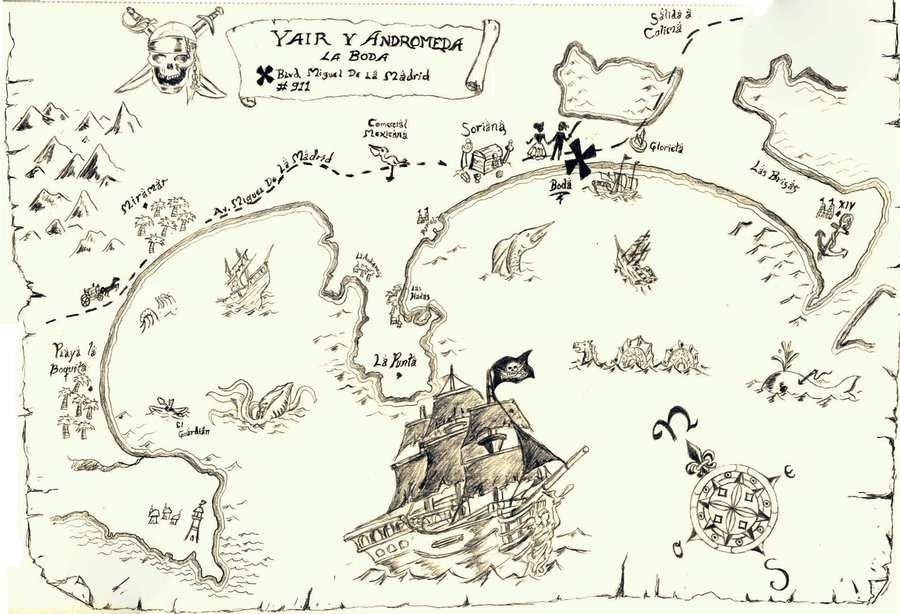 YAIR Y ANDROMEDA
LA BODA
Blvd. Miguel De La Madrid
# 911
Salida a
Colima
Comercial
Mexicana
Soriana
Glorieta
Av. Miguel De La Madrid
Miramar
Boda
Las Brisas
XIV
Las
Hadas
Playa la
Boquita
La Punta
El
Guardian
N
e
S
O